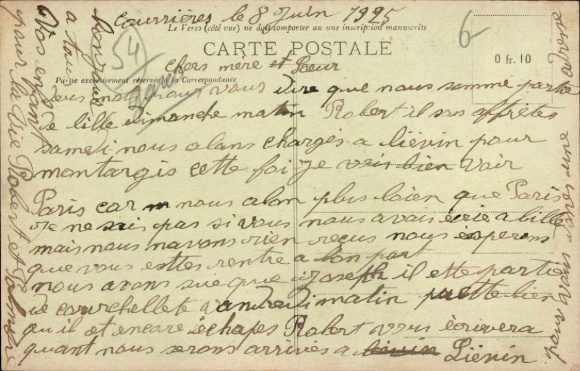 Courrières le 8 Juin 1925
Le Verso (côté vue) ne doit comporter au une inscription manuscrite
CARTE POSTALE
Partie exclusivement réservée à la Correspondance
54
6
0 fr. 10
Chers mère et Sœur
deux mots pour vous dire que nous somme partie
de lille dimanche matin Robert il sas affretes
samedi nous alons chargés a liévin pour
montargis cette foi je vais bien voir
Paris car nous alon plus loien que Paris
Je ne sais pas si vous nous avais écrie a lille
mais nous navons rien reçus nous éspérons
que vous ettes rentre a bon port
nous avons sue que Joseph il ette partie
de courchellete vandredi matin
qu il et encore échapes Robert vous écrivera
quant nous serons arrivés a Liévin
pour vous donés une adrese
Vos enfant
pour la vie Robert et
bonjour
a tous